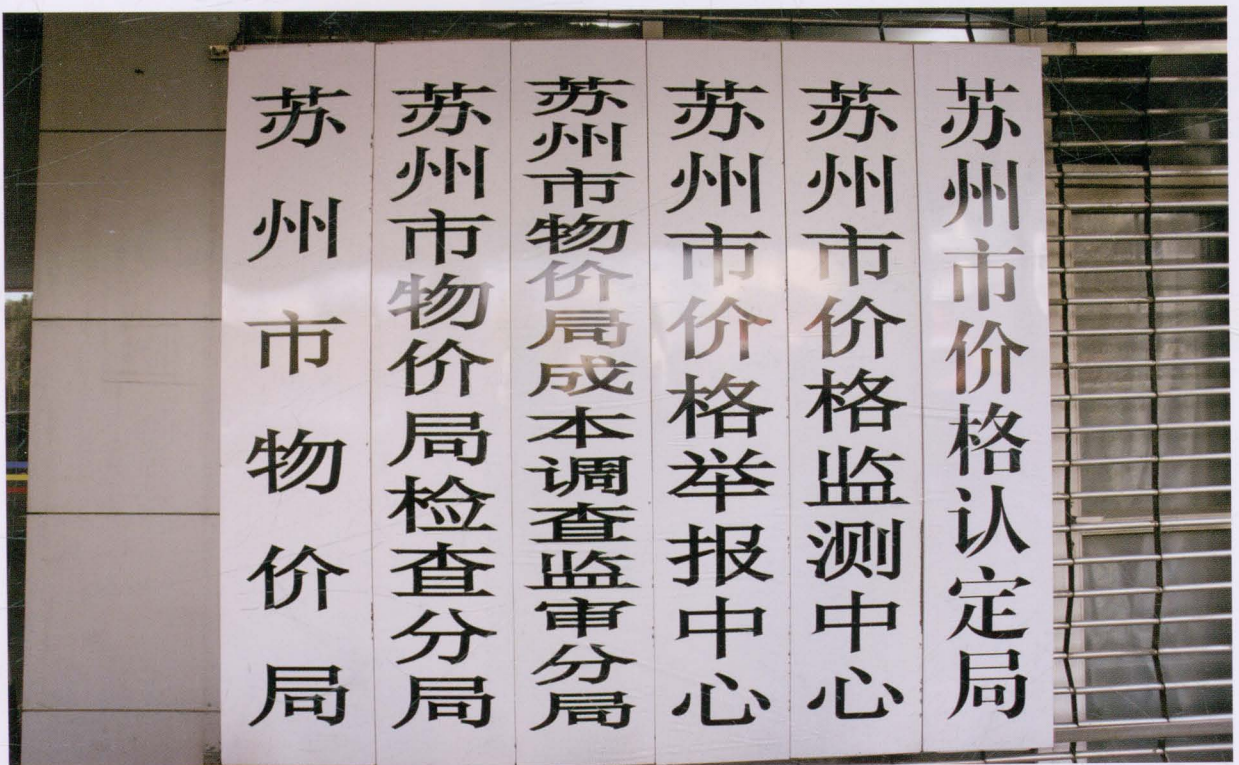 苏州市物价局
苏州市物价局检查分局
苏州市物价局成本调查监审分局
苏州市价格举报中心
苏州市价格监测中心
苏州市价格认定局